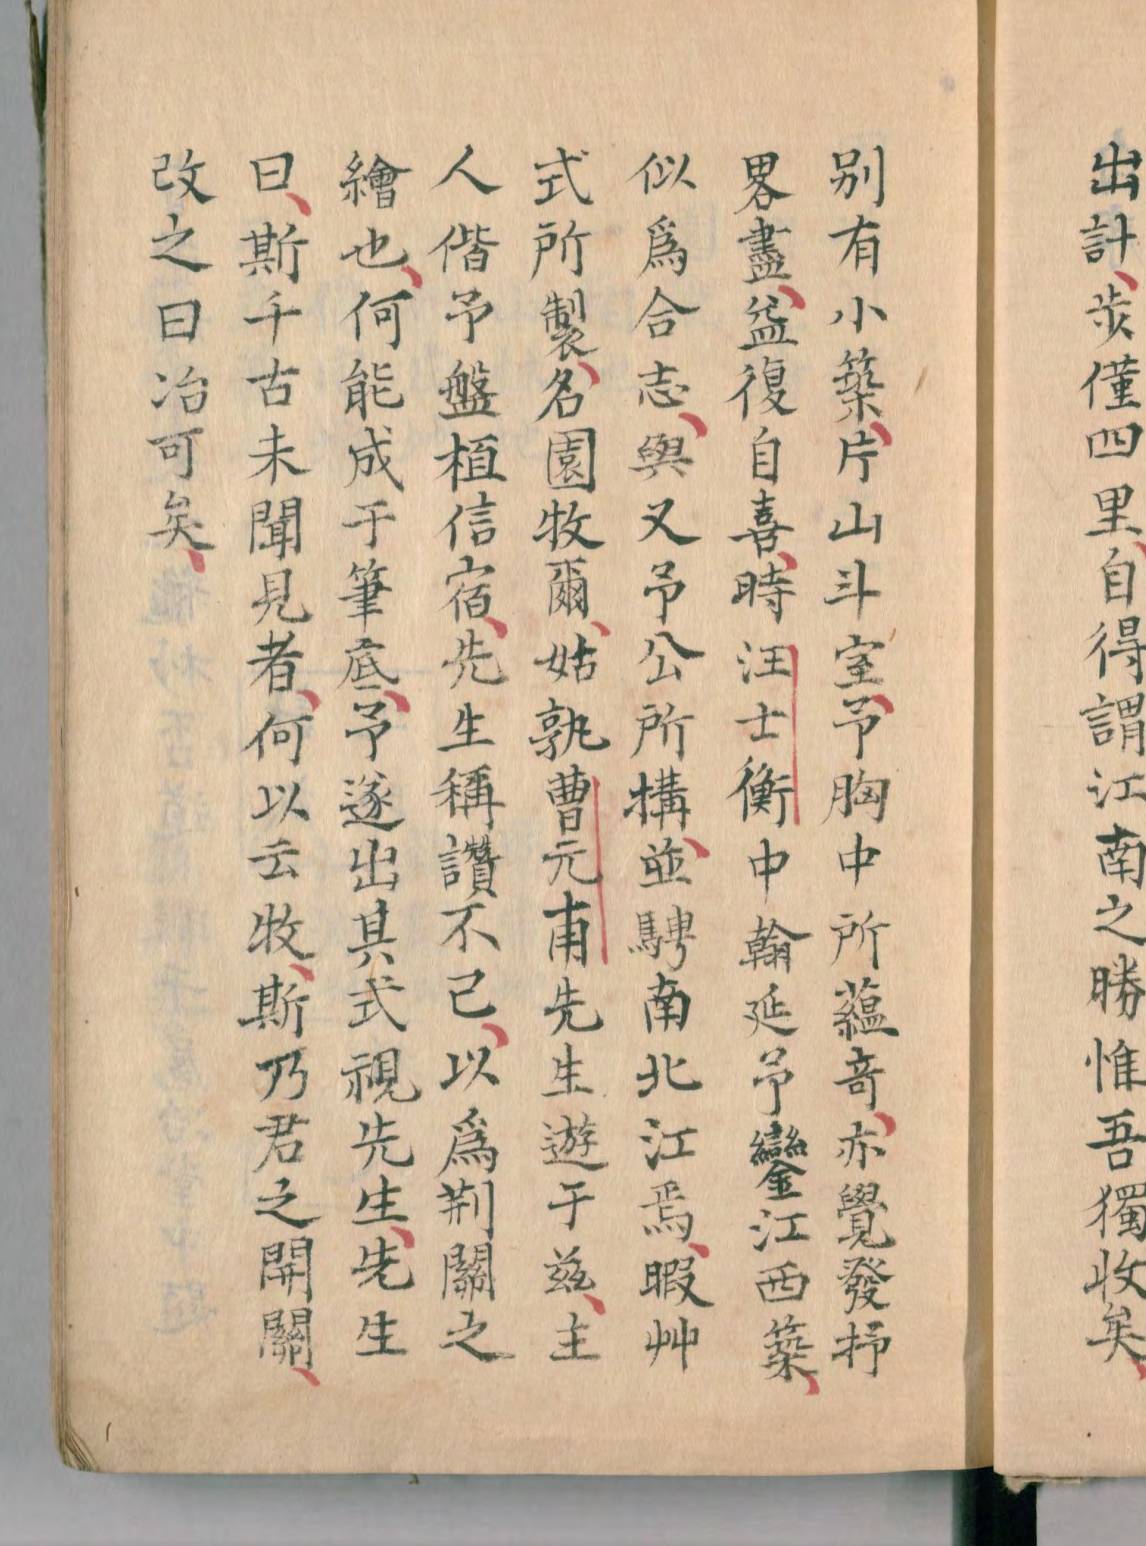 出計、步僅四里、自得謂江南之勝惟吾獨收矣、
别有小築、片山斗室、予胸中所蘊奇、亦覺發抒
畧盡、益復自喜、時汪士衡中翰延予鑾江西築、
似爲合志、與又予公所構、並騁南北江焉、暇艸
式所製、名園牧爾、姑孰曹元甫先生遊于兹、主
人偕予盤桓信宿、先生稱讚不已、以爲荆關之
繪也、何能成于筆底、予遂出其式視先生、先生
曰、斯千古未聞見者、何以云牧、斯乃君之開闢、
改之曰冶可矣、